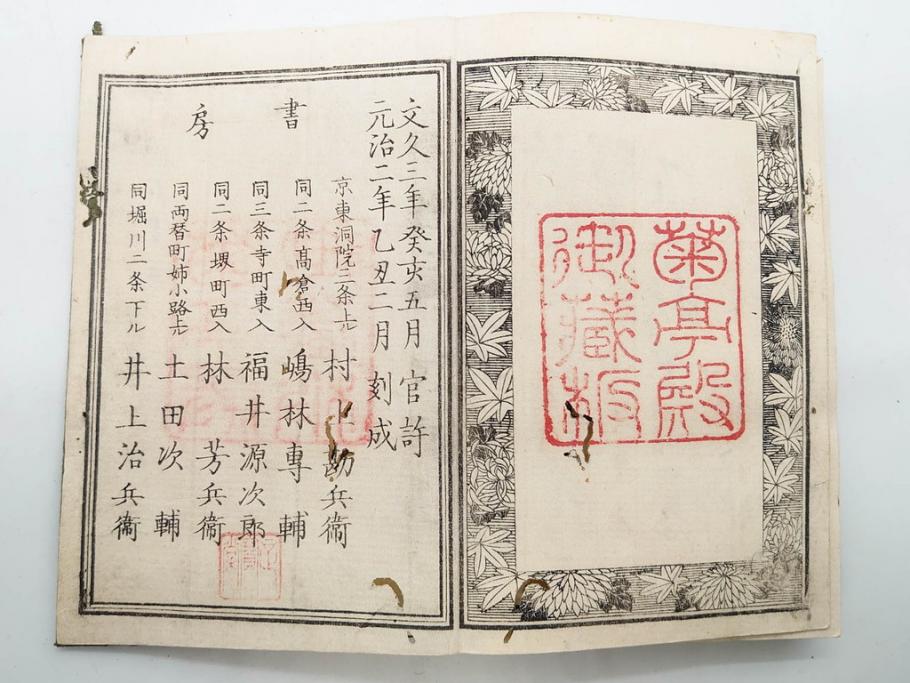 菊亭殿
御蔵板
文久三年癸亥五月 官許
元治二年乙丑二月 刻成
書房
京東洞院三条上ル 村上勘兵衞
同二条髙倉西入 嶋林專輔
同三条寺町東入 福井源次郎
同二条堺町西入 林芳兵衞
同両替町姉小路上ル 土田次輔
同堀川二条下ル 井上治兵衞